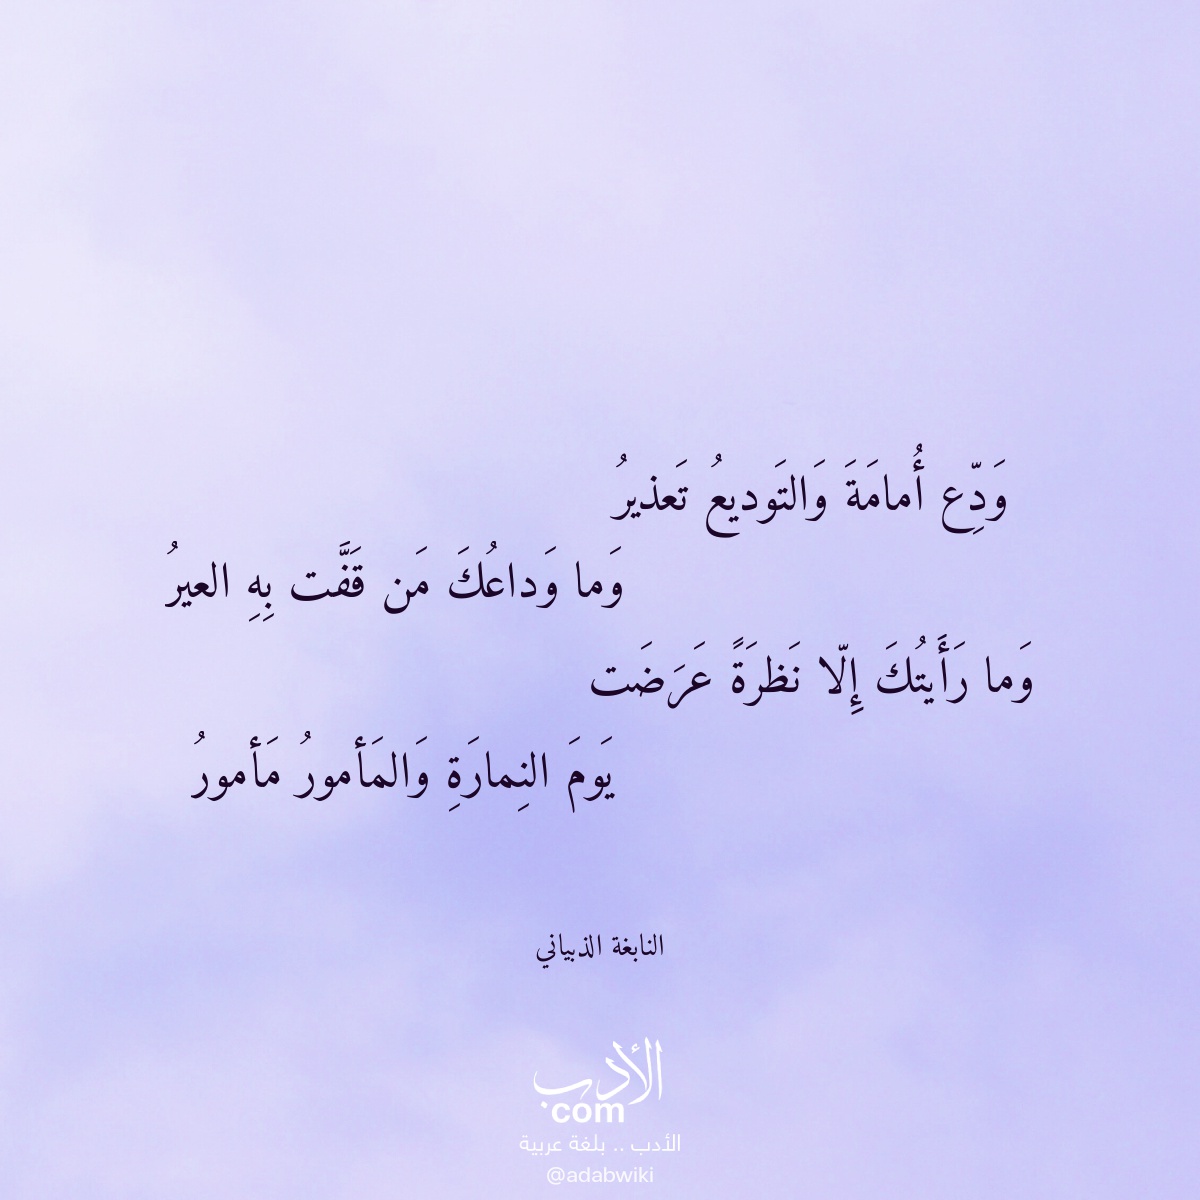 وَدِّع أُمامَةَ وَالتَوديعُ تَعذيرُ
وَما وَداعُكَ مَن قَفَّت بِهِ العيرُ
وَما رَأَيتُكَ إِلّا نَظرَةً عَرَضَت
يَومَ النِمارَةِ وَالمَأمورُ مَأمورُ
النابغة الذبياني
الأدب
com
الأدب .. بلغة عربية
@adabwiki